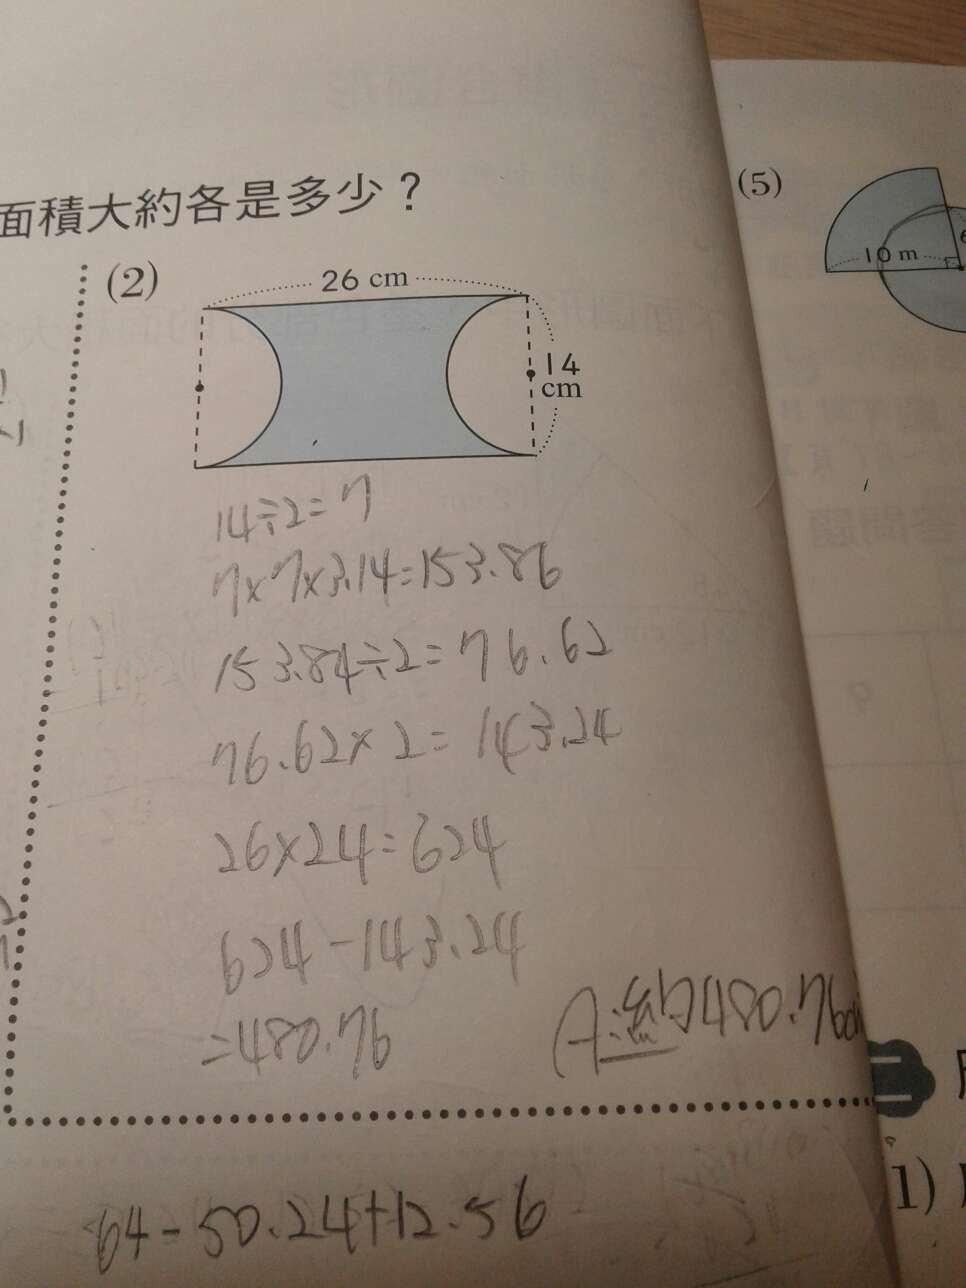 面積大約各是多少？
(2)
26 cm
14
cm
14÷2=7
7×7×3.14=153.86
153.84÷2=76.62
76.62×2=143.24
26×24=624
624-143.24
=480.76
A:約480.76cm
64-50.24+12.56
(5)
10 m
6
二
1)